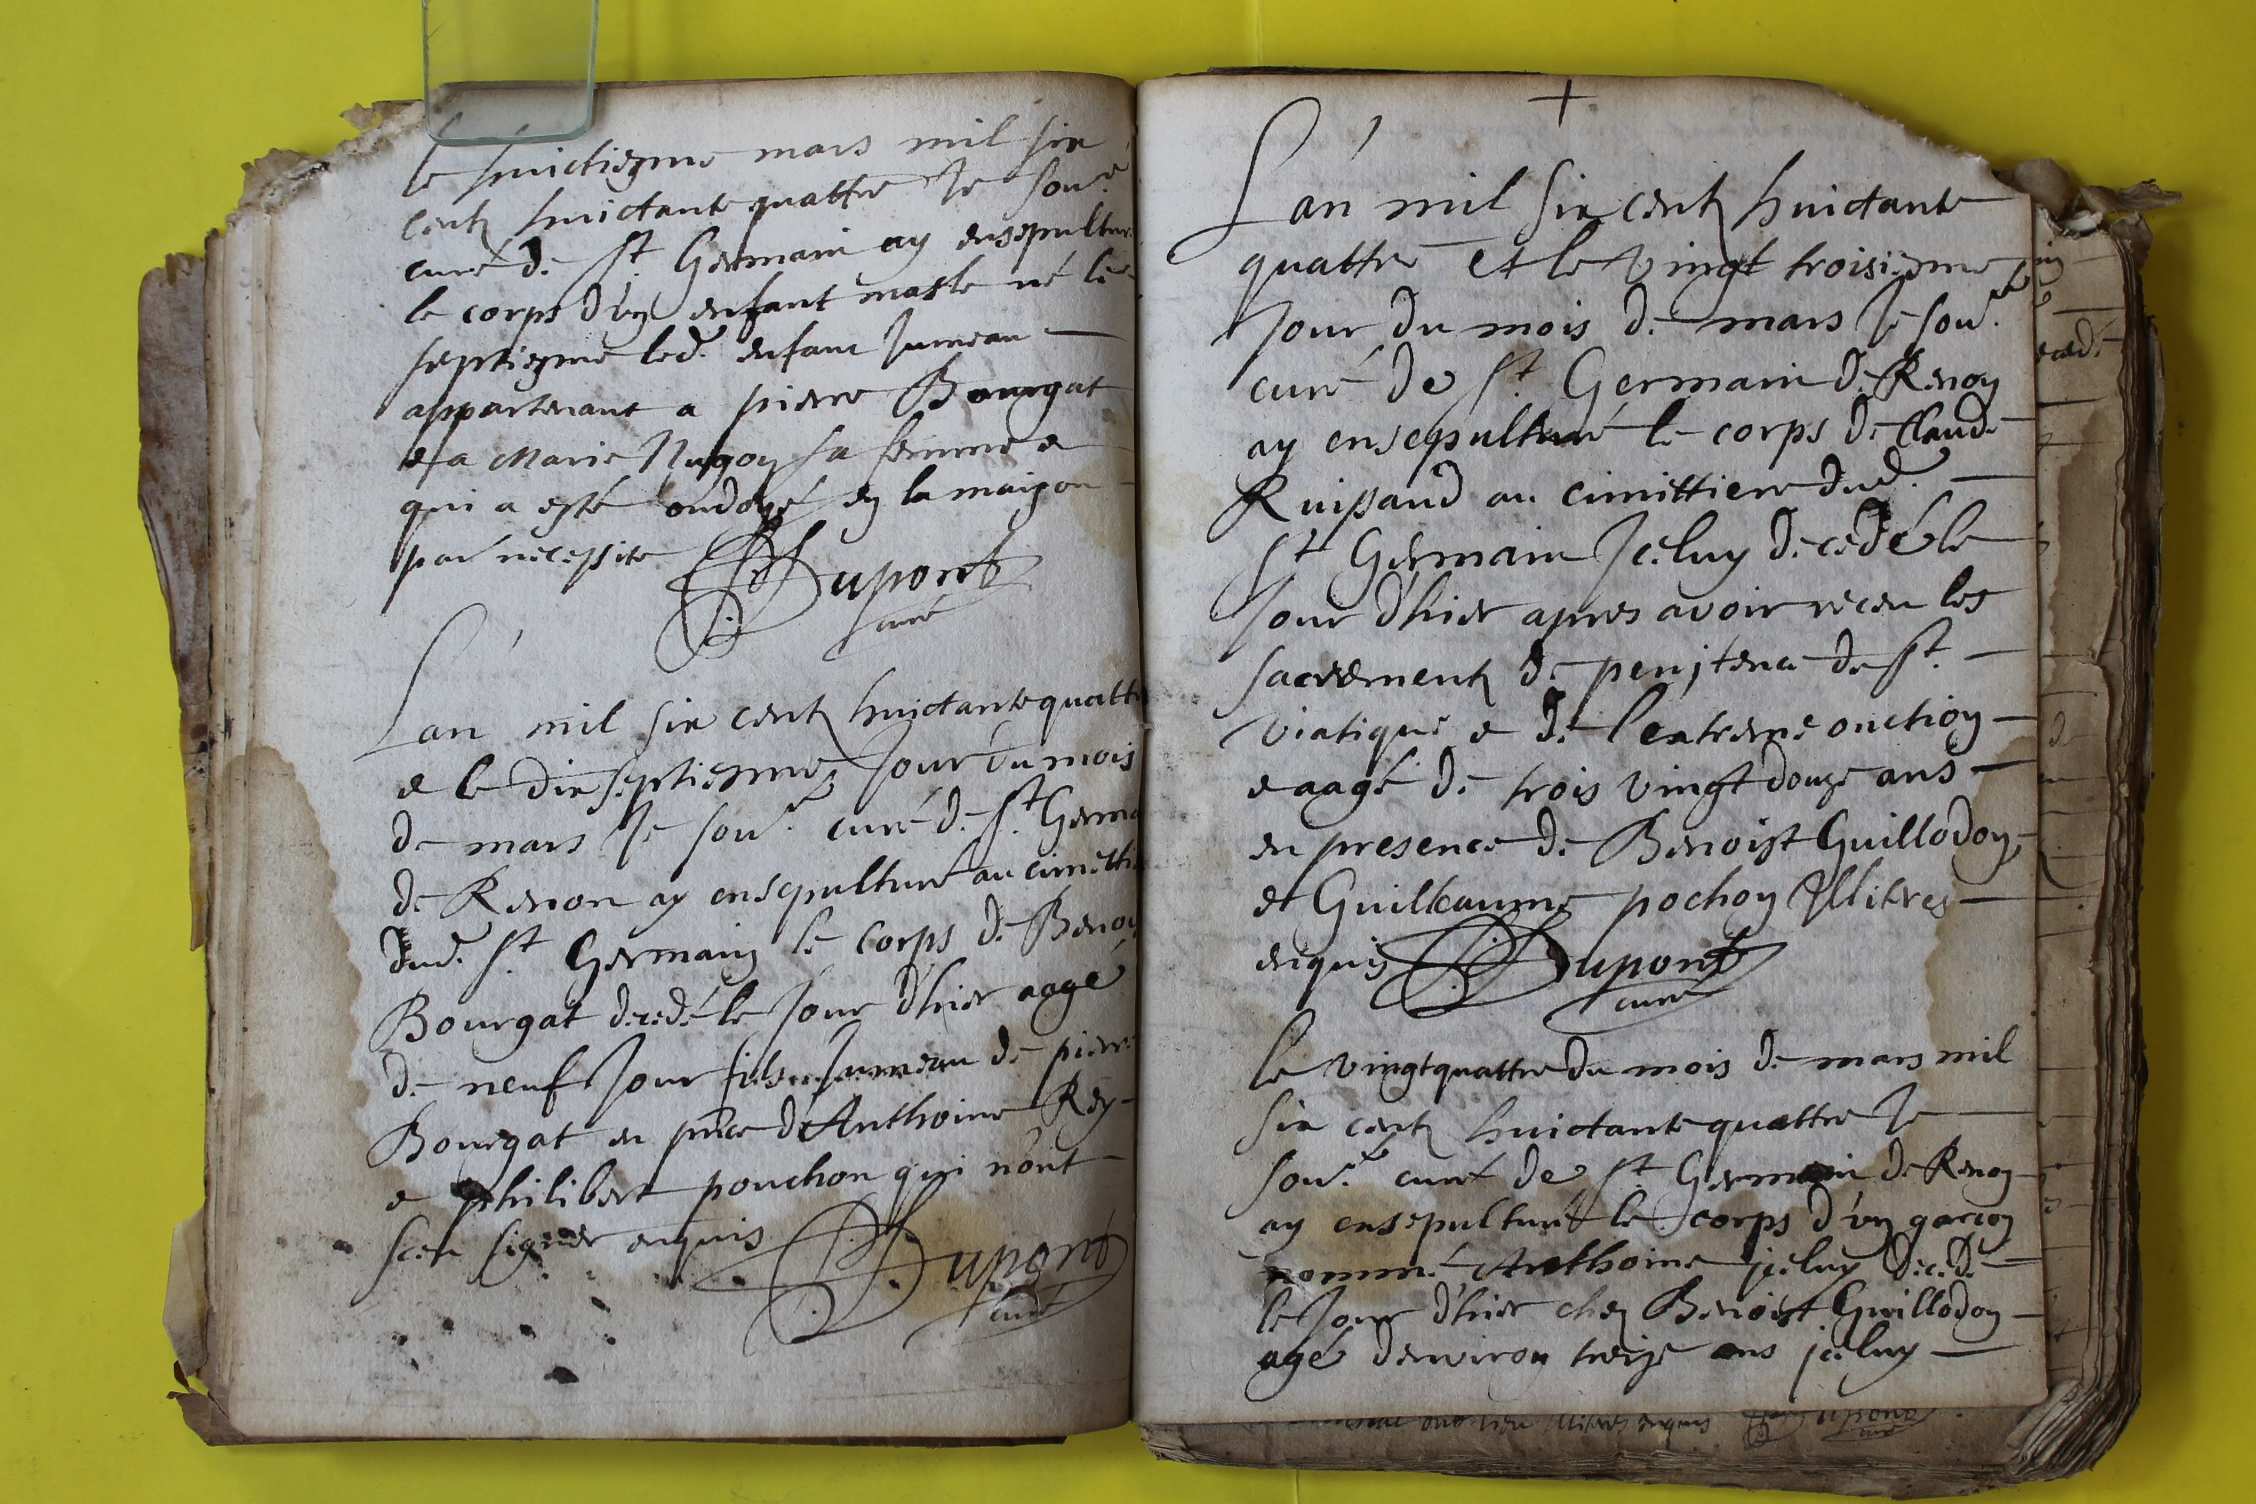 le huictiesme mars mil six
centz huictante quattre Je sou.^é
curé de S^t Germain ay ensepultur
le corps d'un enfant masle né le
septiesme led. enfant Jumeau
appartenant a pierre Bourgat
e a Marie Nugoy sa femme e
qui a esté ondoyé en la maison
par necessite Dupont
curé
L'an mil six centz huictante quattr
e le dix septiesme Jour du mois
de mars Je sou.^é curé de S^t Germa
de Renon ay ensepulturé au cimetti
dud. S^t Germain le corps de Benoi
Bourgat decedé le Jour d'hier aagé
de neuf Jour fils Jumeau de pierre
Bourgat en p^nce d'Anthoine Rey
e philibert pouchon qui n'ont
sceu signer enquis Dupont
curé
L'an mil six centz huictante
quattre et le vingt troisiesme
Jour du mois de mars Je sou.^é
curé de S^t Germain de Renon
ay ensepulturé le corps de Claude
Ruissaud au cimittiere dud.
S^t Germain Jceluy decedé le
Jour d'hier apres avoir receu les
sacrementz de penitence de S^t
viatique e de l'extreme onction
e aagé de trois vingt douze ans
en presence de Benoist Guillodon
et Guilleaume pochon Illitres
enquis Dupont
curé
le vingtquattre du mois de mars mil
six centz huictante quattre Je
sou.^é curé de S^t Germain de Renon
ay ensepulturé le corps d'un garcon
nommé Anthoine jceluy decedé
le Jour d'hier chez Benoist Guillodon
agé d'environ treize ans jceluy
Illitres enquis Dupont
curé